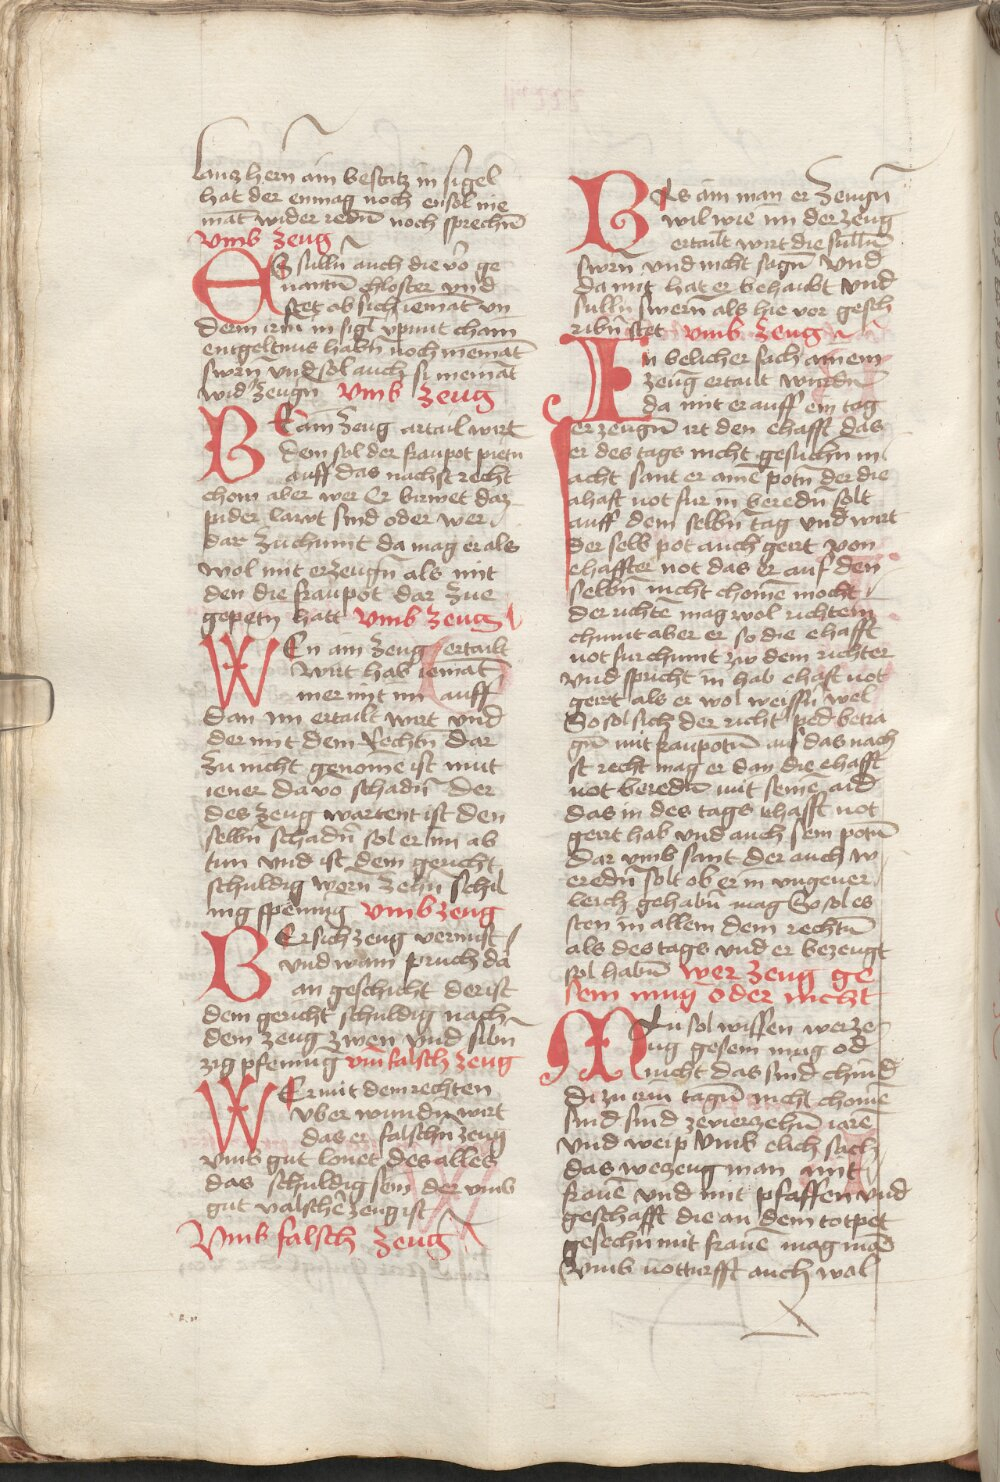 lantz hern̄ ain bestatz in sigel
hat der enmag noch ensol nie
māt wider redn̄ noch sprechn̄
vmb zeug
ES sulln̄ auch die vō ge
nantn̄ chloster vnd
stet ob sich iemāt vn
derm irm in sigl vpnit cham
entgeltnus habn̄ noch niemāt
swrn̄ vnd sol auch si niemāt
wid zeugn vmb zeug
BEr ain zeug artail wirt
dem sol der franpot pietn
auff das nachst recht
chom aber wer Er birwet daz
prider lawt sind oder wer
dar zu chumt da mag er als
wol mit erzeugn̄ als mit
den die franpot dar zue
gepetn̄ hatt vmb zeug
WEn ain zeug ertailt
wirt hab iemāt
mer mit im auff
dan im ertailt wirt vnd
der mit dem Rechtn̄ dar
zu nicht genomē ist mut
iener da vō schadn̄ der
des zeug wartent ist den
selbn̄ schadn̄ sol er im ab
tun vnd ist dem gericht
schuldig wern zehn schil
ing pfening vmb zeug
BEr sich zeug vermist
vnd wam pruch da
an geschicht der ist
dem gericht schuldig nach
dem zeug zwen vnd sibn̄
zig pfening vm falsch zeug
WEr mit dem rechten
vber wundn̄ wirt
das er falschn zeug
vmb gut lonet des alles
das schuldig sein der vmb
gut valschē zeug ist
Vmb falsch zeug
BEs ain man er zeugn̄
wil wie im der zeug
ertailt wirt die sulln̄
swrn̄ vnd nicht sagn̄ vnd
da mit hat er behaubt vnd
sulln̄ swern̄ als hie vor gesch
ribn̄ stet vmb zeug
In belicher sach ainem
zeug ertailt wurdn̄
da mit er auff ein tag
erzeugn̄ irt den ehafft das
er des tags nicht gesuchn̄ m
acht sant er ainē potn̄ der die
ehaft not fur in beredn̄ solt
auff dem selbn̄ tag vnd wirt
der selb pot auch geirt von
ehaffter not das er auf den
selbn̄ nicht chomē mocht
der richtē mag wol richten
chumt aber er so die ehafft
not furchumt zw dem richter
vnd spricht in hab ehaft not
geirt als er wol weissn̄ wel
So sol sich der richt ped betra
gn̄ mit franpotn̄ auf das nach
st recht mag er dan die ehafft
not beredn̄ mit seinē aid
das in des tags ehafft not
geirt hab vnd auch sein potn̄
dar vmb sant der auch w
eredn̄ solt ob er in vngeuer
leich gehabn̄ mag So sol es
sten in allem dem rechtn̄
als des tags vnd er bezeugt
sol habn̄ wer zeug ge
sein mug oder nicht
MAn sol wissen wer ze
ug gesein mug od
nicht das sind chind
di zu irn tagn̄ nicht chomē
sind sind ze vierzehn̄ iarē
vnd weip vmb elich sach
das wezeug man mit
frauē vnd mit pfaffen vnd
geschafft die an dem totpet
gesechn mit frauē mag man
vmb notturfft auch wol